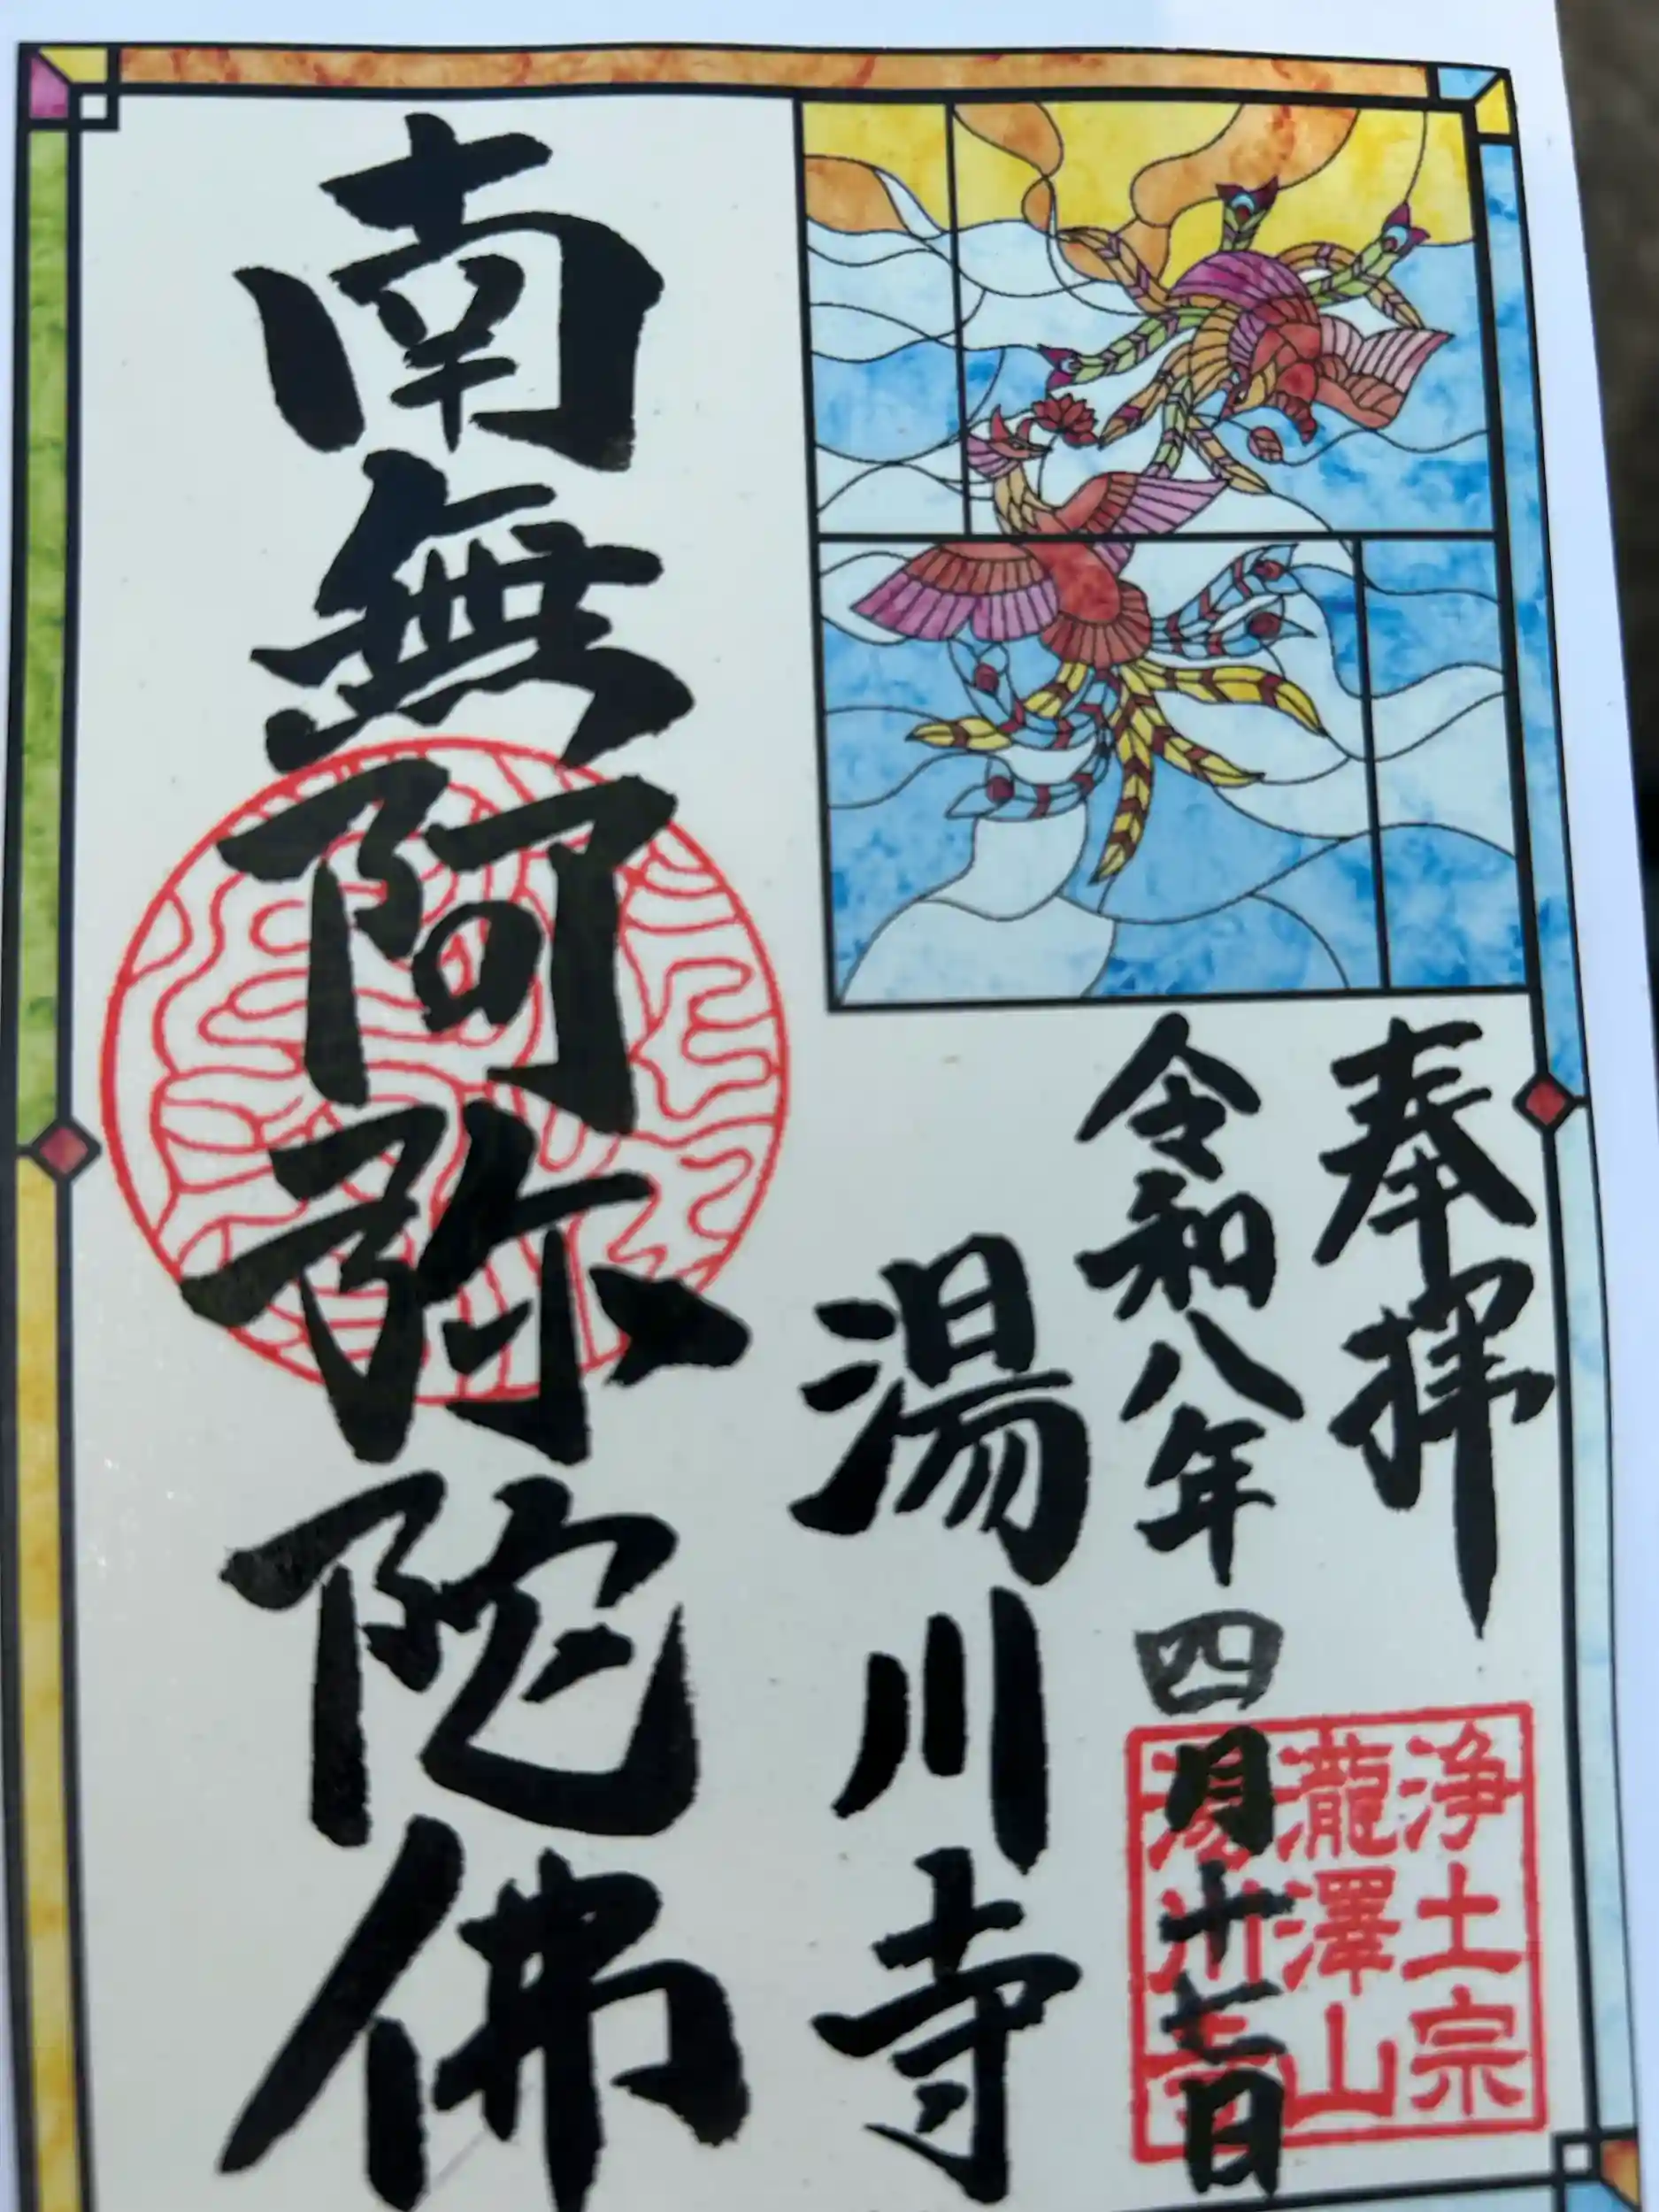 奉拝
令和八年四月十七日
湯川寺
南無阿弥陀佛
浄土宗
瀧澤山
湯川寺